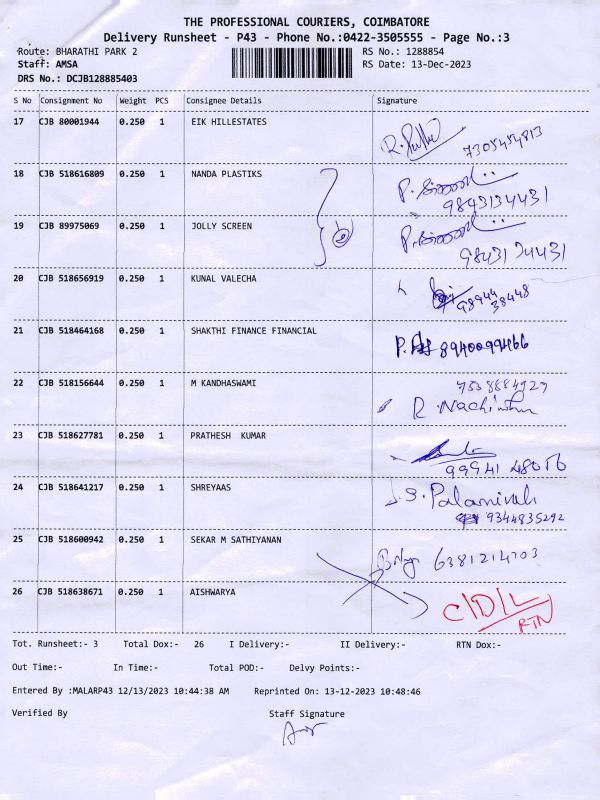 THE PROFESSIONAL COURIERS, COIMBATORE
Delivery Runsheet - P43 - Phone No.:0422-3505555 - Page No.:3
Route: BHARATHI PARK 2 RS No.: 1288854
Staff: AMSA RS Date: 13-Dec-2023
DRS No.: DCJB128885403
S No Consignment No Weight PCS Consignee Details Signature
17 CJB 80001944 0.250 1 EIK HILLESTATES
7305454813
18 CJB 518616809 0.250 1 NANDA PLASTIKS
9843134431
19 CJB 89975069 0.250 1 JOLLY SCREEN
20 CJB 518656919 0.250 1 KUNAL VALECHA
98944
38448
21 CJB 518464168 0.250 1 SHAKTHI FINANCE FINANCIAL
8940099466
22 CJB 518156644 0.250 1 M KANDHASWAMI
23 CJB 518627781 0.250 1 PRATHESH KUMAR
99941 48056
24 CJB 518641217 0.250 1 SHREYAAS
9344835292
25 CJB 518600942 0.250 1 SEKAR M SATHIYANAN
6381214703
26 CJB 518638671 0.250 1 AISHWARYA
C/D/L
RTN
Tot. Runsheet:- 3 Total Dox:- 26 I Delivery:- II Delivery:- RTN Dox:-
Out Time:- In Time:- Total POD:- Delvy Points:-
Entered By :MALARP43 12/13/2023 10:44:38 AM Reprinted On: 13-12-2023 10:48:46
Verified By Staff Signature